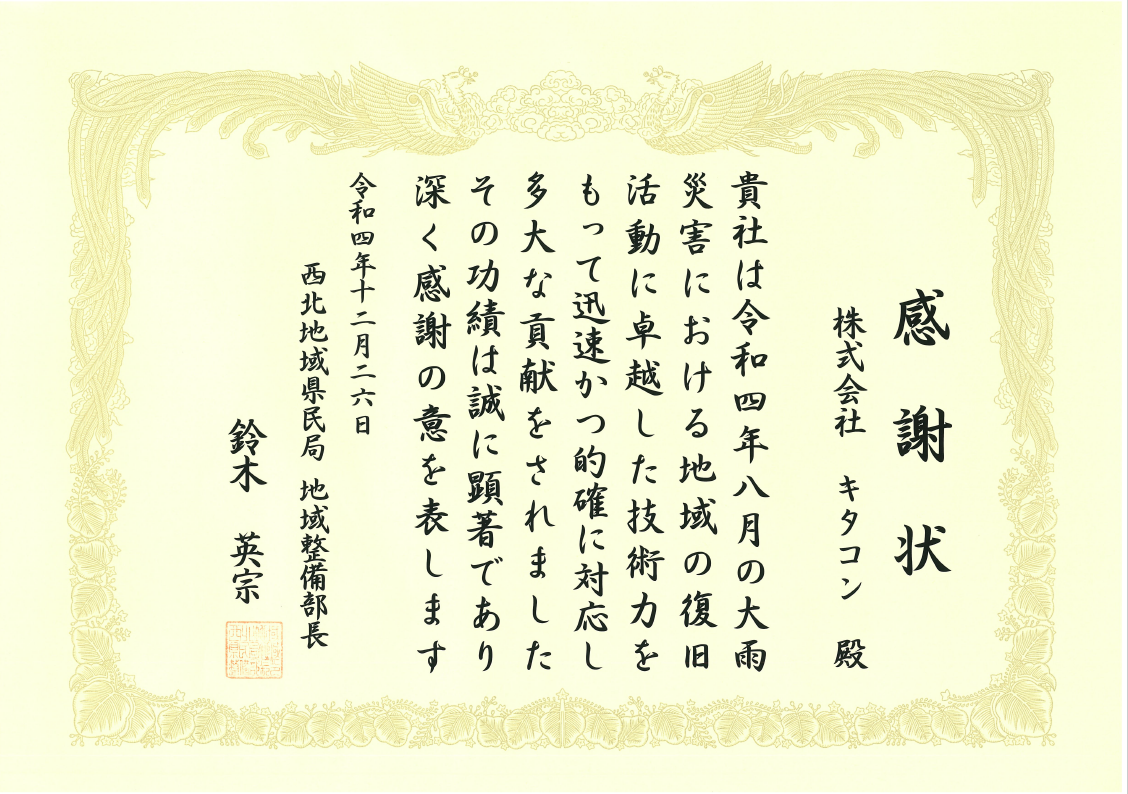 感謝状
株式会社 キタコン 殿
貴社は令和四年八月の大雨
災害における地域の復旧
活動に卓越した技術力を
もって迅速かつ的確に対応し
多大な貢献をされました
その功績は誠に顕著であり
深く感謝の意を表します
令和四年十二月二六日
西北地域県民局 地域整備部長
鈴木 英宗